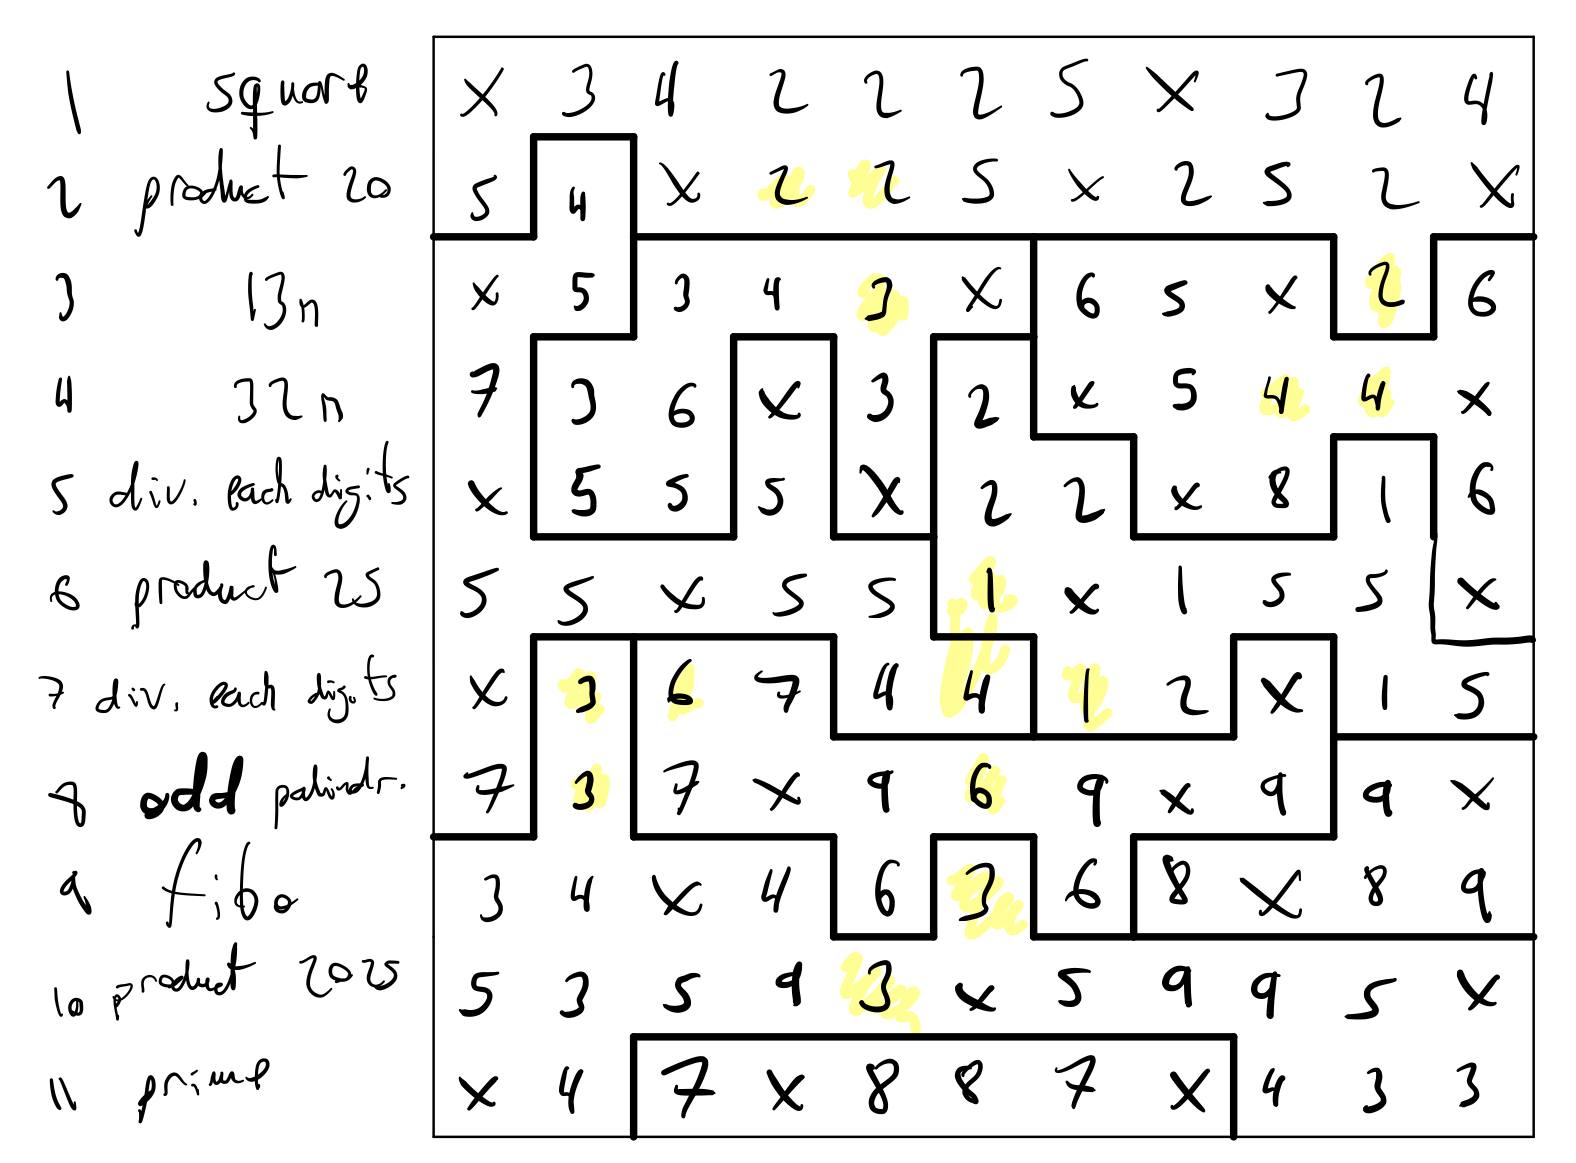 1 square X 3 4 2 2 2 5 X 3 2 4
2 product 20 5 4 X 2 2 5 X 2 5 2 X
3 13n X 5 3 4 3 X 6 5 X 2 6
4 32n 7 3 6 X 3 2 X 5 4 4 X
5 div. each digits X 5 5 5 X 2 2 X 8 1 6
6 product 25 5 5 X 5 5 1 X 1 5 5 X
7 div. each digits X 3 6 7 4 4 1 2 X 1 5
8 odd palindr. 7 3 7 X 9 6 9 X 9 9 X
9 fibo 3 4 X 4 6 3 6 8 X 8 9
10 product 2025 5 3 5 9 3 X 5 9 9 5 X
11 prime X 4 7 X 8 8 7 X 4 3 3